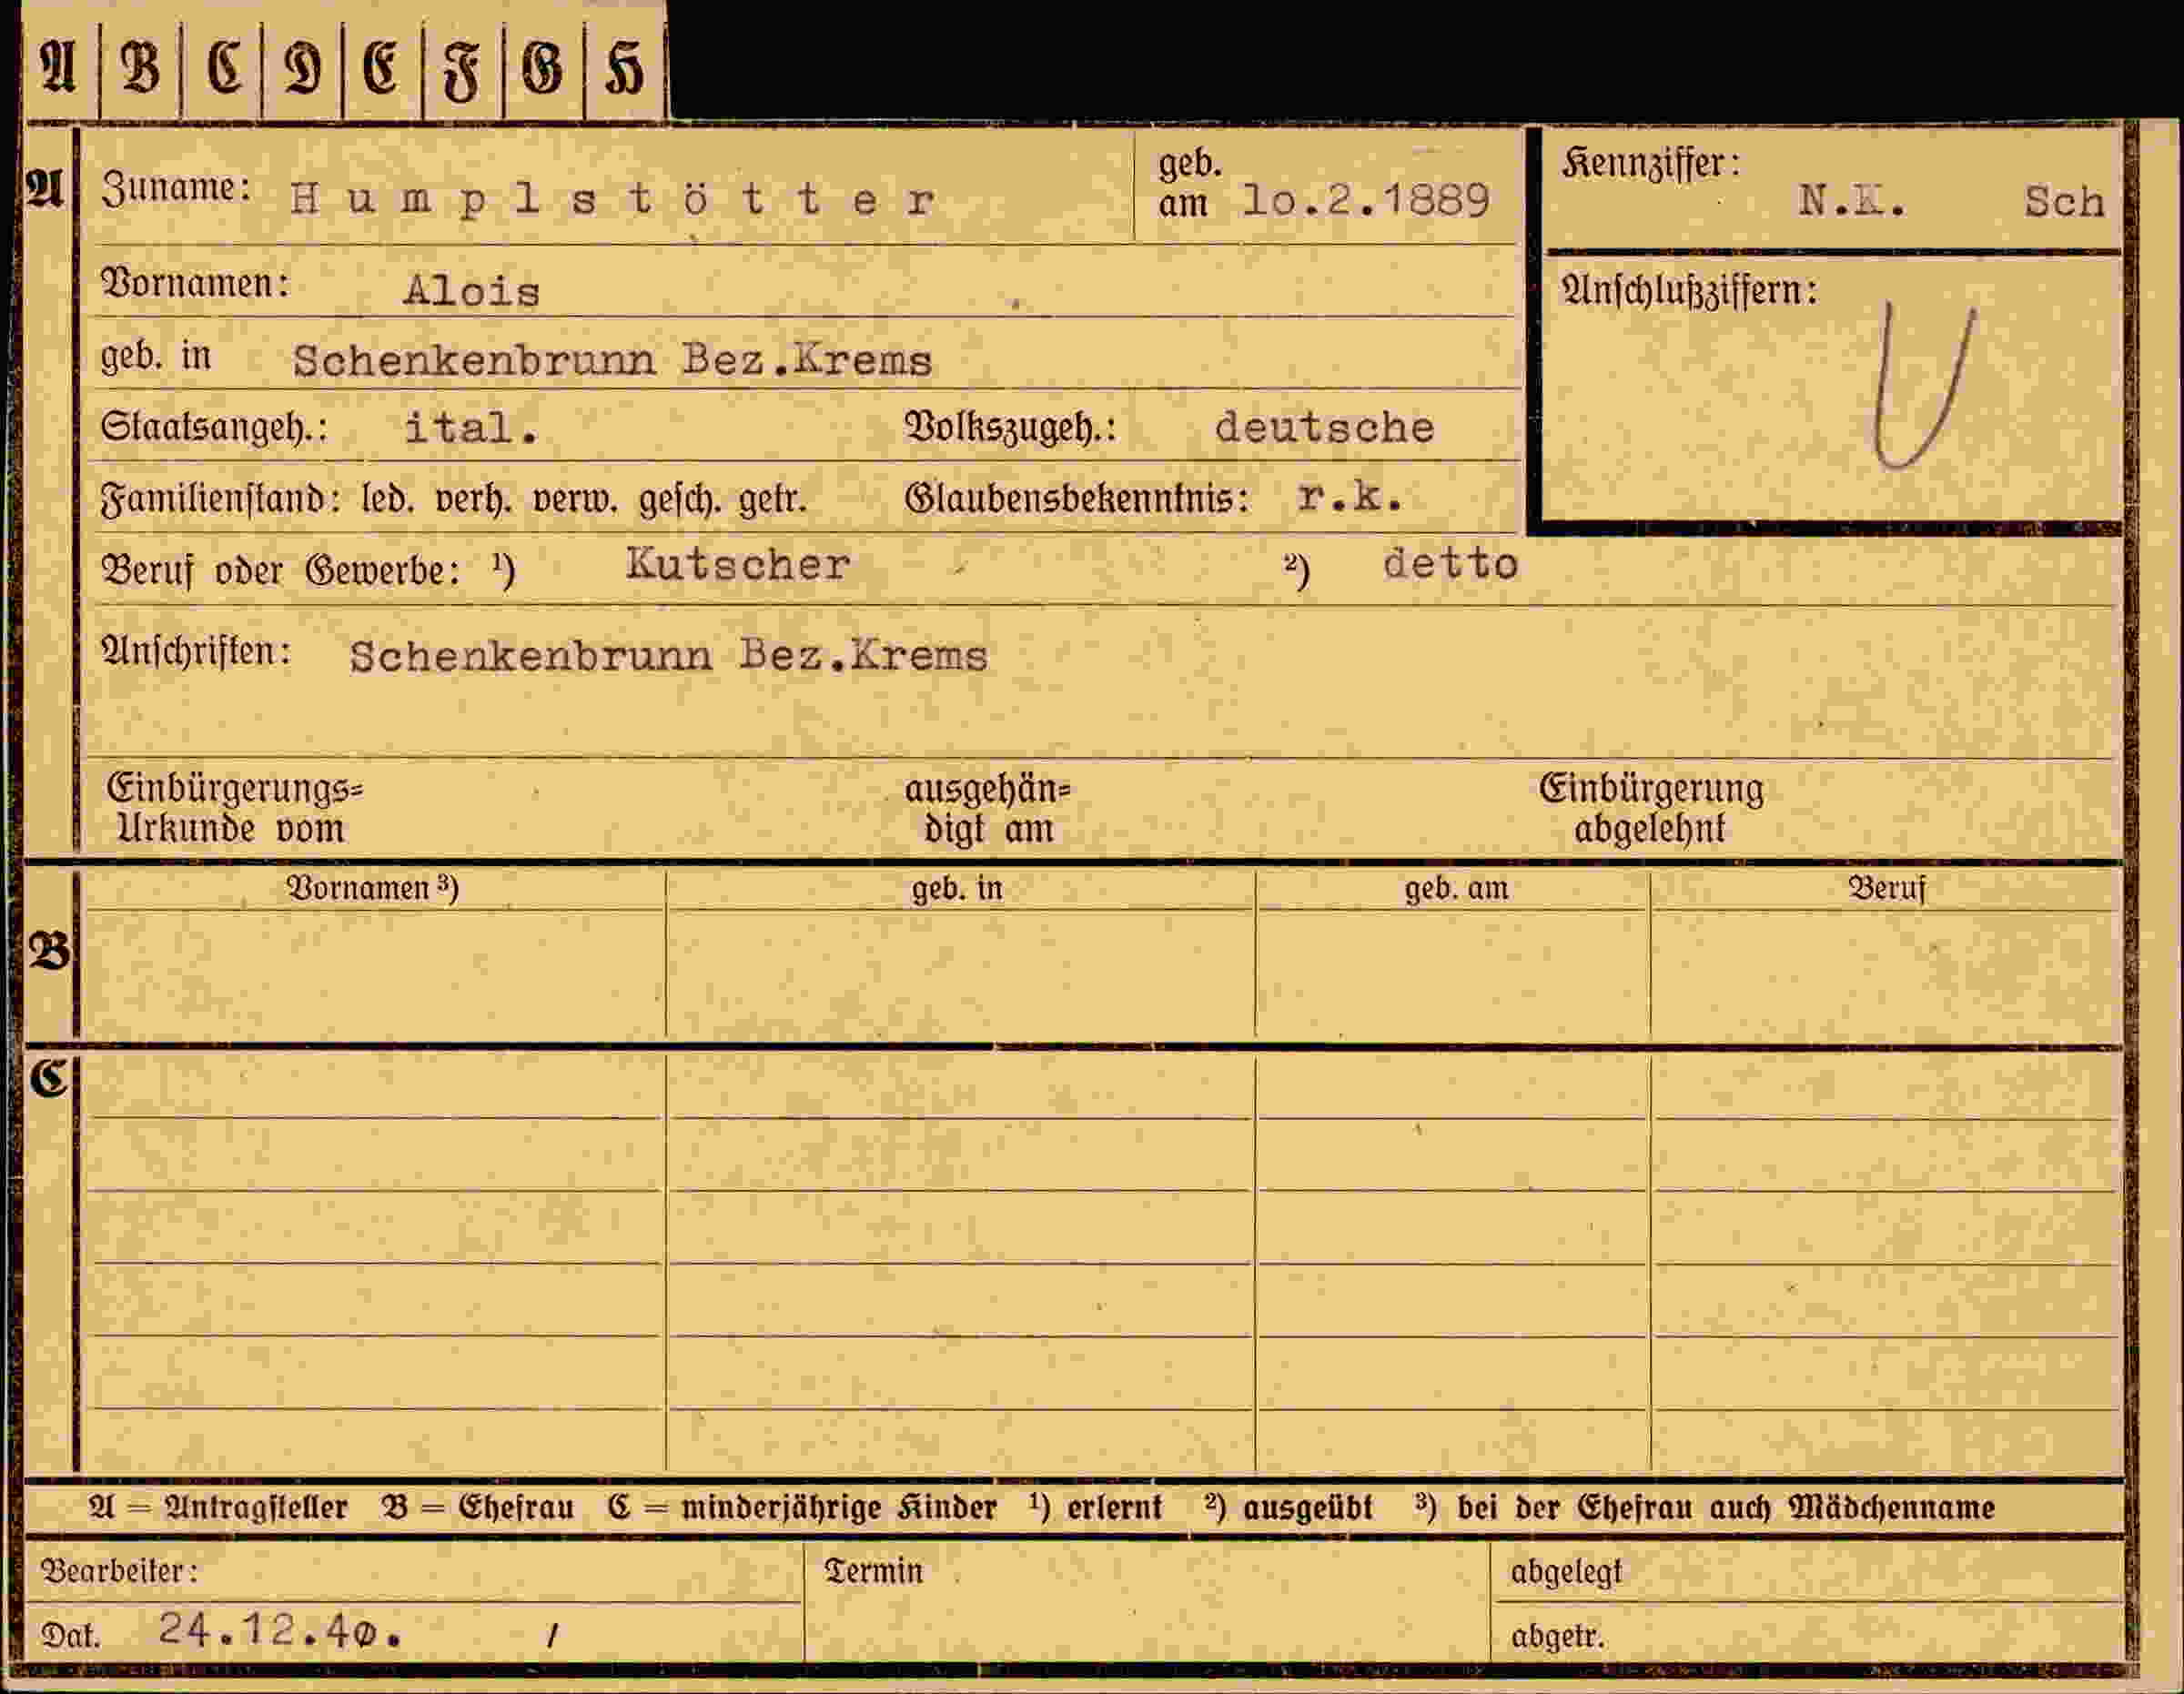 A B C D E F G H
A Zuname: Humplstötter geb. am lo.2.1889 Kennziffer: N.K. Sch
Vornamen: Alois Anschlußziffern: U
geb. in Schenkenbrunn Bez.Krems
Staatsangeh.: ital. Volkszugeh.: deutsche
Familienstand: led. verh. verw. gesch. getr. Glaubensbekenntnis: r.k.
Beruf oder Gewerbe: ¹) Kutscher ²) detto
Anschriften: Schenkenbrunn Bez.Krems
Einbürgerungs= ausgehän= Einbürgerung
Urkunde vom digt am abgelehnt
Vornamen ³) geb. in geb. am Beruf
B
C
A = Antragsteller B = Ehefrau C = minderjährige Kinder ¹) erlernt ²) ausgeübt ³) bei der Ehefrau auch Mädchenname
Bearbeiter: Termin abgelegt
Dat. 24.12.40. / abgetr.